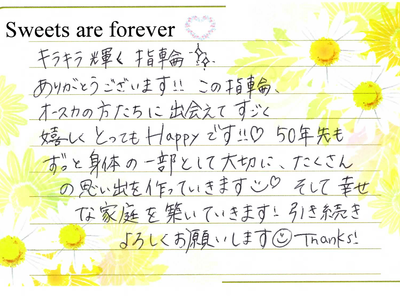 Sweets are forever
キラキラ輝く指輪✨
ありがとうございます!! この指輪、
オースカの方たちに出会えてすごく
嬉しくとってもHappyです!!♡ 50年先も
ずっと身体の一部として大切に、たくさん
の思い出を作っていきます☺♡ そして幸せ
な家庭を築いていきます! 引き続き
よろしくお願いします☺ Thanks!